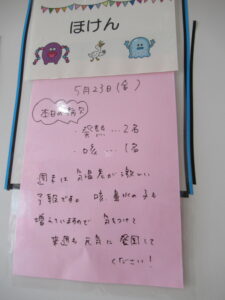 ほけん
5月23日(金)
本日の病欠
・発熱…2名
・咳…1名
週末は気温差が激しい
予報です。咳、鼻水の子も
増えていますので気をつけて
来週も元気に登園して
ください!